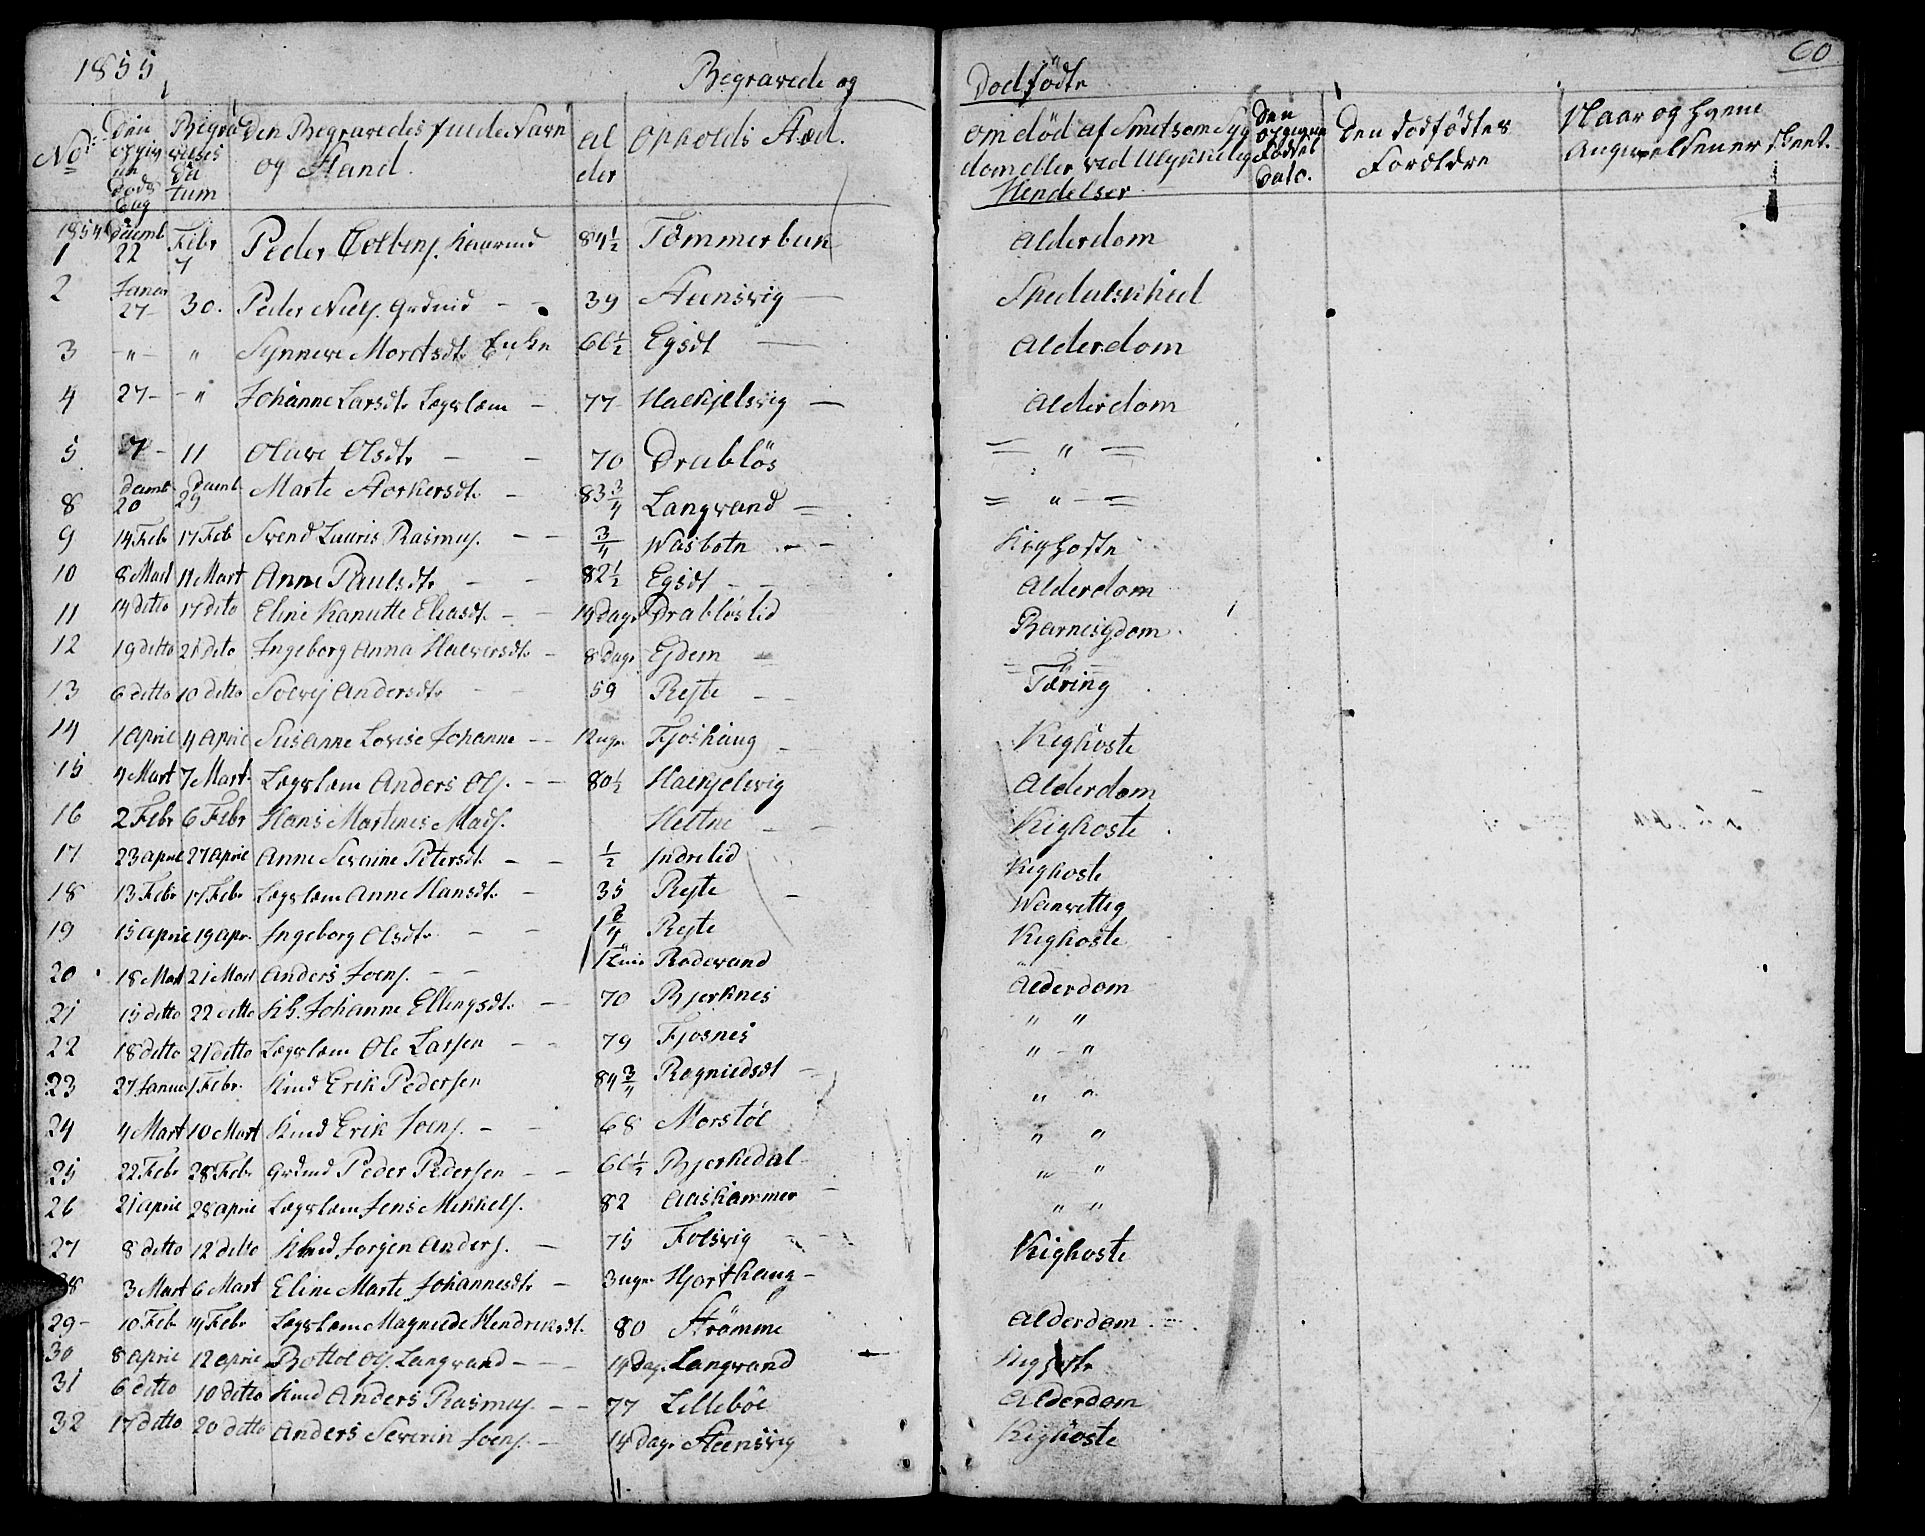 1855 Begravede og Dödfödte 60
No Den opgivne Döds Dag Begravelses Datum Den Begravedes fulde Navn og Stand. Alder Opholds Stæd. om död af Smetsom Sygdom eller ved Ulykkelig Hendelser Den opgivne Födsels Dato. Den dödfödtes Forældre Naar og hvem Anmeldelsen er skeet.
1854
1 Decemb 22 Febr 7 Peder Colbens. Kaarmd 84½ Tömmerbak Alderdom
2 Januar 27 30. Peder Niels. Grdmd 39 Steensvig Spedalskhed
3 " " Synneve Mortsdtr Enke 61½ Egsdt Alderdom
4 27 " Johanne Larsdtr Lægslem 77 Halkjelsvig Alderdom
5 7 11 Oluve Olsdtr 70 Drablös "
8 Decmb 20 Decmb 29 Marte Storkersdtr 83¾ Langvand "
9 14 Febr 17 Feb Svend Lauris Rasmus. ¾ Wasbotn Kighoste
10 8 Mart 11 Mart Anne Paulsdtr 82½ Egsdt Alderdom
11 14 ditto 17 dito Eline Kanutte Eliasdt. 19 Dage Drabløslid Barnesygdom
12 19 ditto 21 dito Ingeborg Anna Halversdtr 8 Dage Ejdem
13 6 ditto 10 ditto Solvej Andersdtr 59 Rejte Tæring
14 1 April 4 April Susanne Lovise Johanne 12 ugr. Fjöshaug Kighoste
15 4 Mart 7 Mart. Lægslem Anders Ols. 80½ Halkjelsvig Alderdom
16 2 Febr 6 Febr Hans Martines Mads. Heltne Kighoste
17 23 April 27 April Anne Sevaine Petersdt. ½ Indrelid Kighoste
18 13 Febr 17 Febr Lægslem Anne Hansdtr 35 Rejte Wanvittig
19 15 April 19 apr. Ingeborg Olsdtr 1¾ Rejte Kighoste
20 18 Mart 21 Mart Anders Joens. Rødevand Alderdom
21 15 ditto 22 ditto Johanne Ellingsdtr 70 Bjerknes " "
22 18 ditto 21 ditto Lægslem Ole Larsen 79 Fjösnes " "
23 27 Januar 1 Febr. Kmd Erik Pedersen 84¾ Rognledsdt " "
24 4 Mart 10 Mart Kmd Erik Joens. 68 Morstöl " "
25 22 Febr 28 Febr Grdmd Peder Pedersen 61½ Bjerkedal " "
26 21 April 28 April Lægslem Jens Mikkels. 82 Aaskammer " "
27 8 ditto 12 ditto Kmd Jorgen Anders. 75 Folsvig Kighoste
28 3 Mart 6 Mart Eline Marte Johannesdtr 3 ugr. Hjorthaug
29 10 Feb. 14 Febr Lægslem Magnilde Hendriksdt. 80 Strömme Alderdom
30 8 April 12 April Bottol Ols. Langvand 14 Dag. Langvand Kighoste
31 6 ditto 10 ditto Kmd Anders Rasmus. 77 Lilleböe Alderdom
32 17 ditto 20 ditto Anders Severin Joens. 14 Dage Steensvig Kighoste